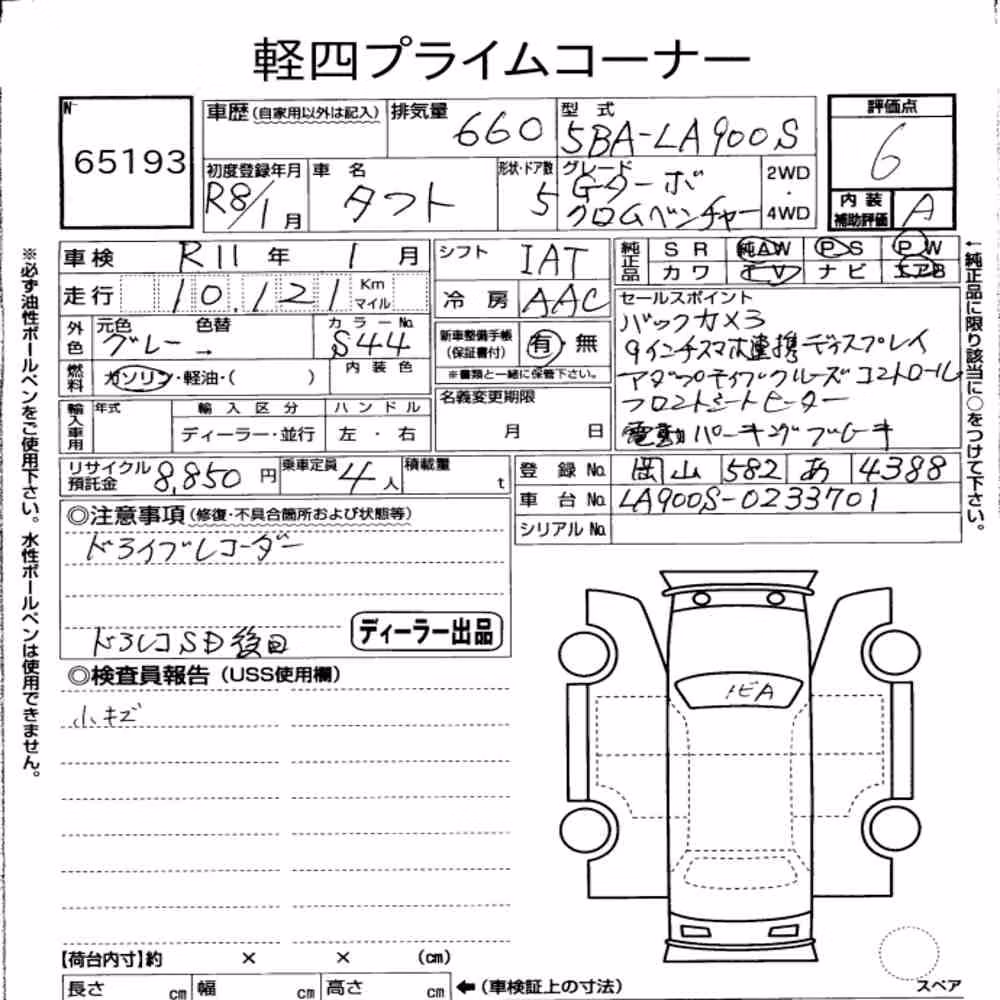 軽四プライムコーナー
No 65193
車歴(自家用以外は記入) 排気量 660 型式 5BA-LA900S
評価点 6
初度登録年月 R8/1月 車名 タフト 形状・ドア数 5 グレード Gターボ クロムベンチャー 2WD・4WD
内装補助評価 A
車検 R11年 1月 シフト IAT
純正品 SR 純AW PS PW
カワ TV ナビ エアB
走行 10,121 Km マイル 冷房 AAC
外色 元色 グレー → 色替 カラーNo. S44
内装色
燃料 ガソリン・軽油・( )
新車整備手帳(保証書付) 有・無
※書類と一緒に保管下さい。
セールスポイント
バックカメラ
9インチスマホ連携ディスプレイ
アダプティブクルーズコントロール
フロントシートヒーター
電動パーキングブレーキ
輸入車用 年式 輸入区分 ディーラー・並行 ハンドル 左・右
名義変更期限 月 日
リサイクル預託金 8,850円 乗車定員 4人 積載量 t
登録No. 岡山 582 あ 4388
車台No. LA900S-0233701
シリアルNo.
◎注意事項(修復・不具合箇所および状態等)
ドライブレコーダー
ドラレコSD後日
ディーラー出品
◎検査員報告(USS使用欄)
小キズ
トビA
【荷台内寸】約 × × (cm)
長さ cm 幅 cm 高さ cm ←(車検証上の寸法)
スペア
※必ず油性ボールペンをご使用下さい。水性ボールペンは使用できません。
←純正品に限り該当に○をつけて下さい。